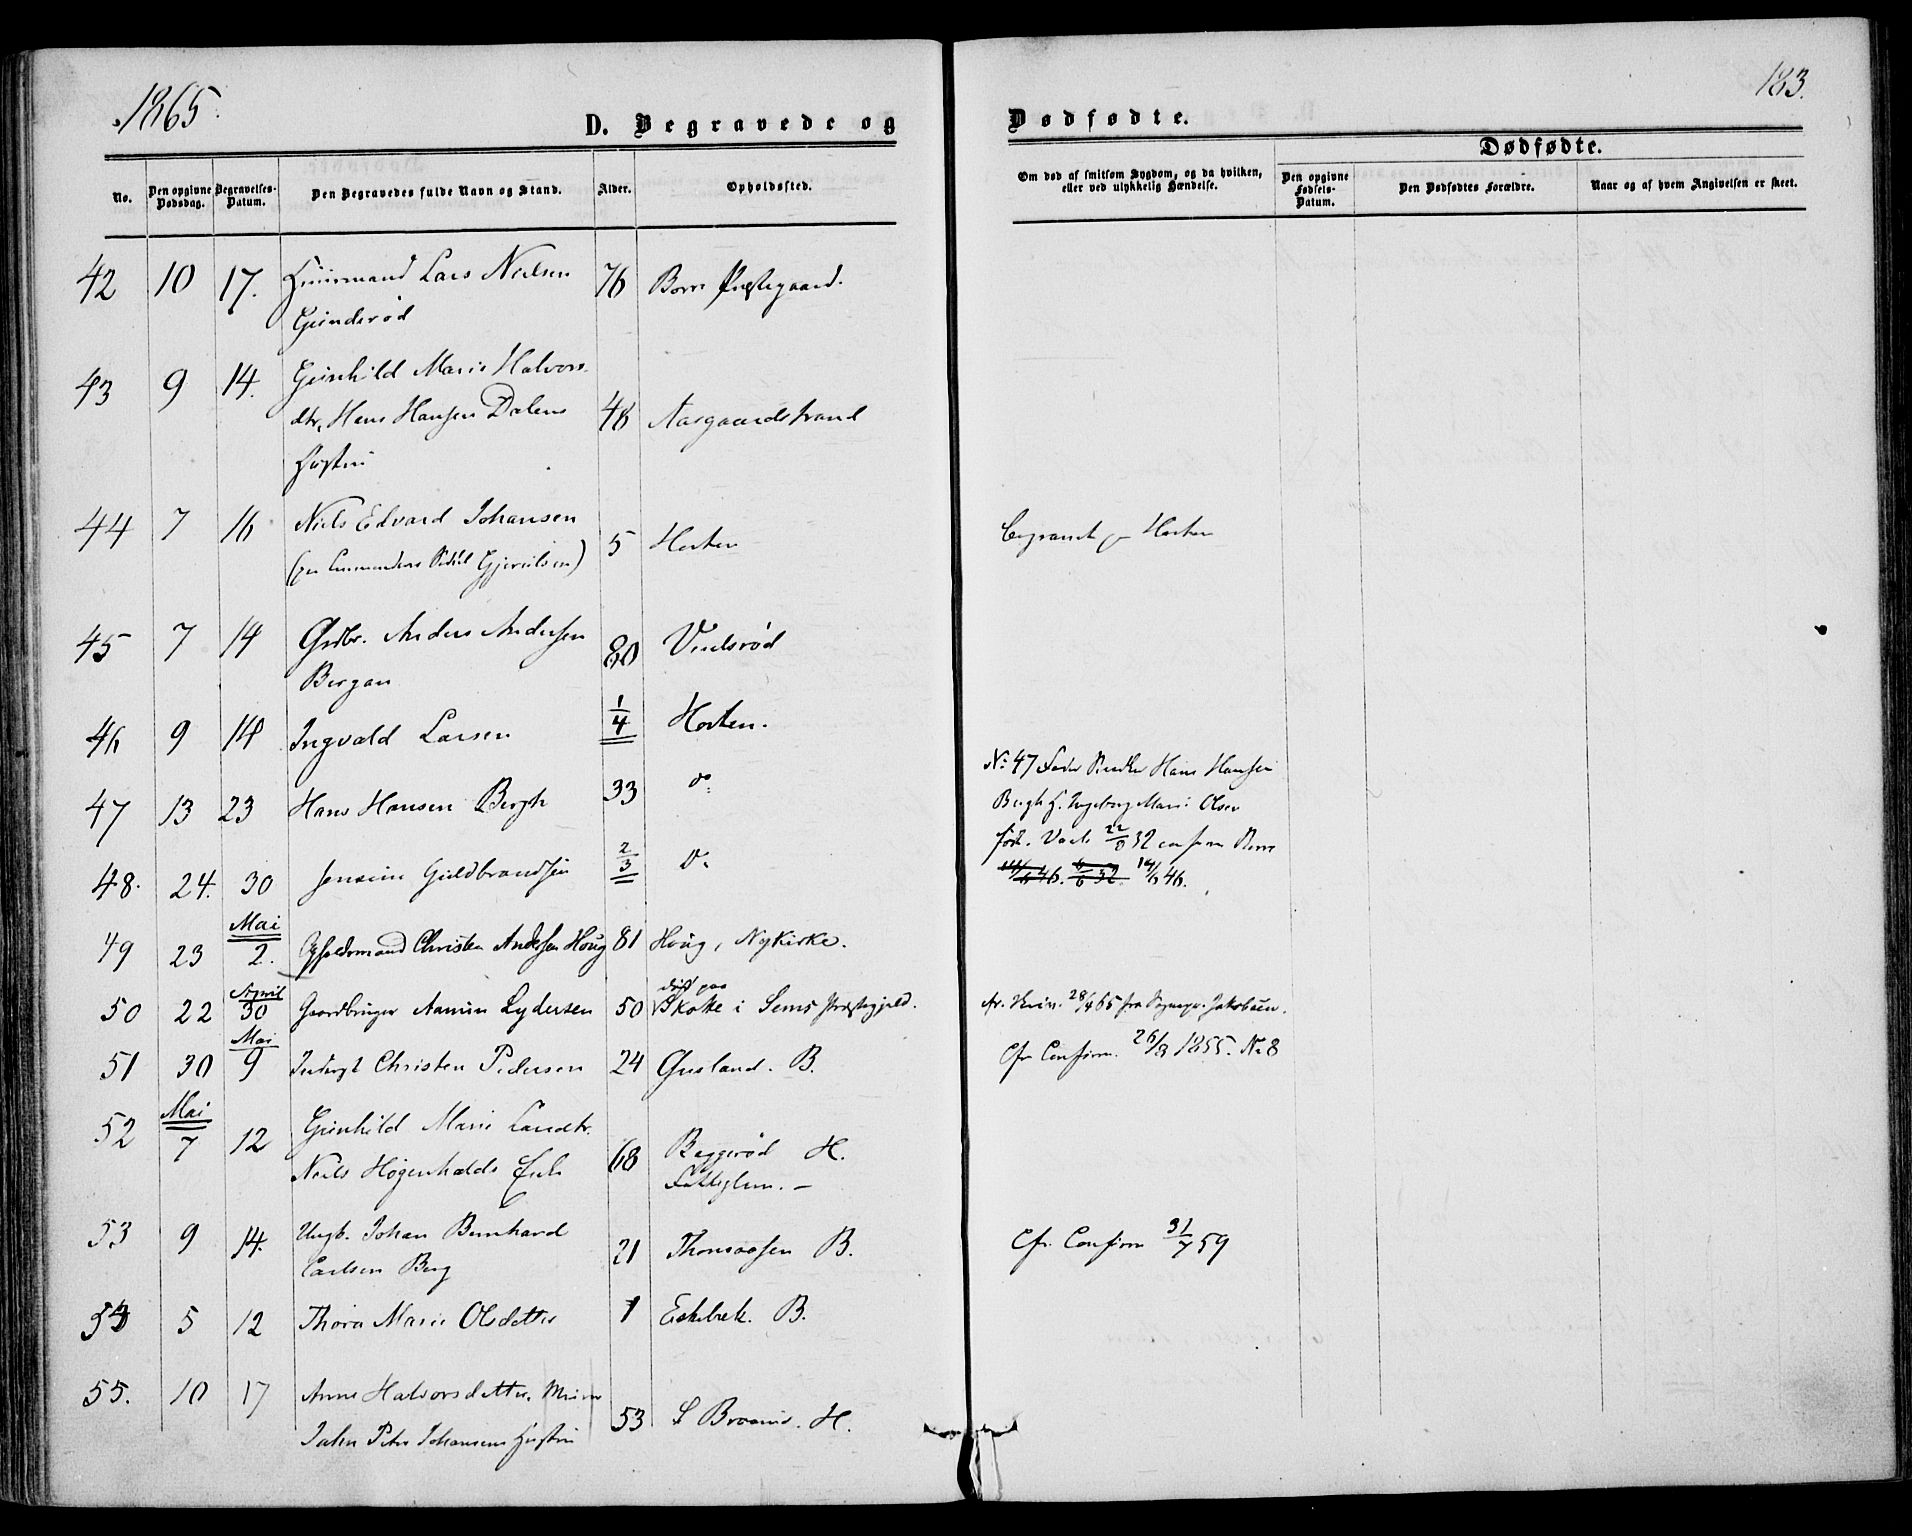 1865.
183.
D. Begravede og
Dødfødte.
No.
Den opgivne Dødsdag.
Begravelses-Datum.
Den Begravedes fulde Navn og Stand.
Alder.
Opholdssted.
Om død af smitsom Sygdom, og da hvilken,
eller ved ulykkelig Hændelse.
Dødfødte.
Den opgivne Fødsels-Datum.
Den Dødfødtes Forældre.
Naar og af hvem Angivelsen er skeet.
42 10 17. Huusmand Lars Nielsen 76 Borre Præstegaard.
Gundersrød
43 9 14. Gunhild Marie Halvors
dtr, Hans Hansen Dalens 48 Aasgaardstrand
Hustru
44 7 16 Niels Edvard Johansen 5 Horten
Gjerulsen)
Begravet paa Horten
45 7 14 Grdbr. Anders Andersen 80
Bergan
46 9 14 Ingvald Larsen 1/4 Horten.
47 13 23 Hans Hansen Bergh 33 do
No 47 Fader Hans Hansen
Bergh H. Ingeborg Marie Olsen
født. 22/8 32 conf Borre
14/6 46.
48. 24. 30 Gulbrandsen 2/3 Do
Mai
49 23 2. Christen Andersen Houg 81 Houg, Nykirke.
April
død paa
50 22 30 Gaardbruger Lydersen 50 i Sems Præstegjeld.
28/4 65 fra Sognepr. Jakobsen.
Mai
51 30 9 Christen Pedersen 24 Gusland. B.
Cfr Confirm. 26/8 1855. No 8
Mai
52 7 12 Gunhild Marie Larsdtr.
Niels Høgenhalds Enke 68 Baggerød H.
Fattiglem. —
53 9 14. Ungk. Johan Bernhard
Carlsen Berg 21 Thonsaasen B.
Cfr. Confirm 31/7 59
54 5 12 Thora Marie Olsdatter 1 Eskebæk. B.
55. 10 17 Anne Halvorsdatter,
Peter Johansens Hustru 53 Braanes. H.